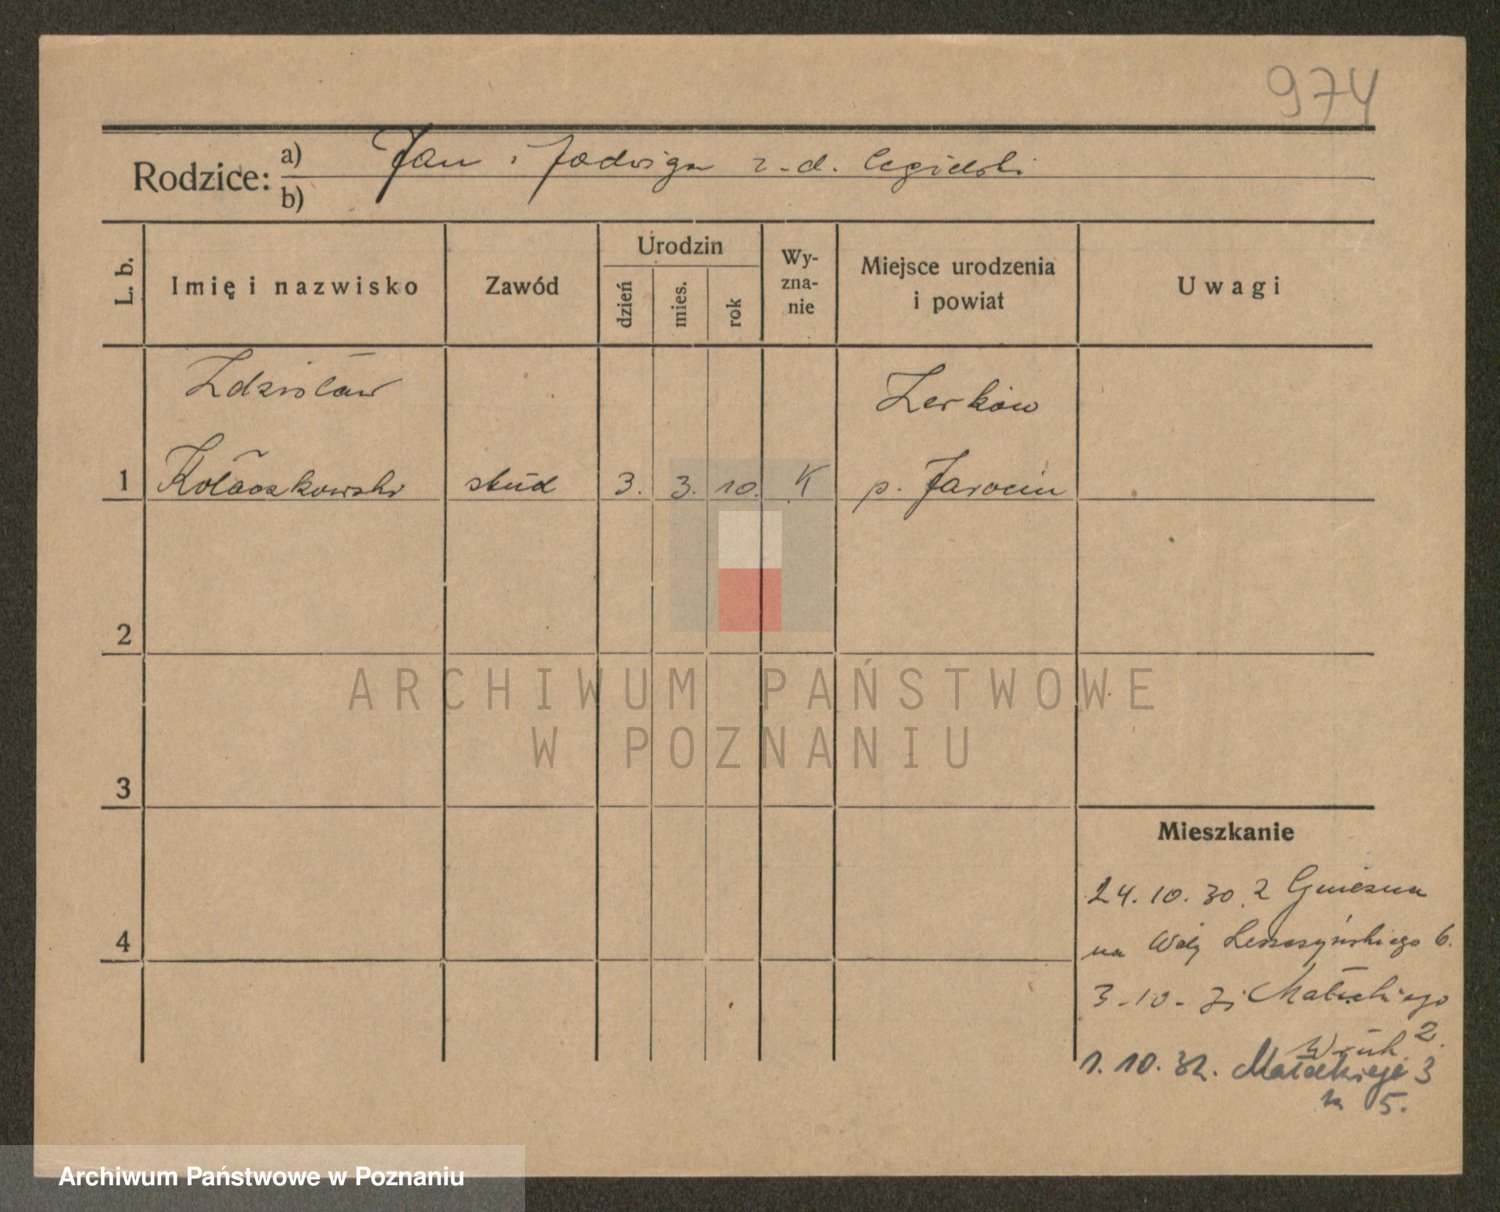 974
Rodzice: a) Jan i Jadwiga z-d. Cegielski
b)
L. b. Imię i nazwisko Zawód Urodzin dzień mies. rok Wy-zna-nie Miejsce urodzenia i powiat Uwagi
Zdzisław Żerków
1 Kołaszkowski stud 3. 3. 10. K p. Jarocin
2
ARCHIWUM PAŃSTWOWE
W POZNANIU
3
Mieszkanie
24.10.30 z Gniezna
4
na Leszczyńskiego 6.
3-10- Małeckiego
2.
1. 10. 32. Małeckiego 3
5.
Archiwum Państwowe w Poznaniu